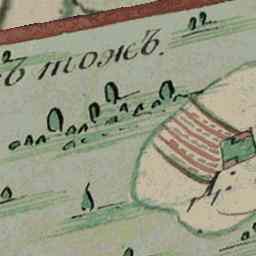 ъ тожъ.